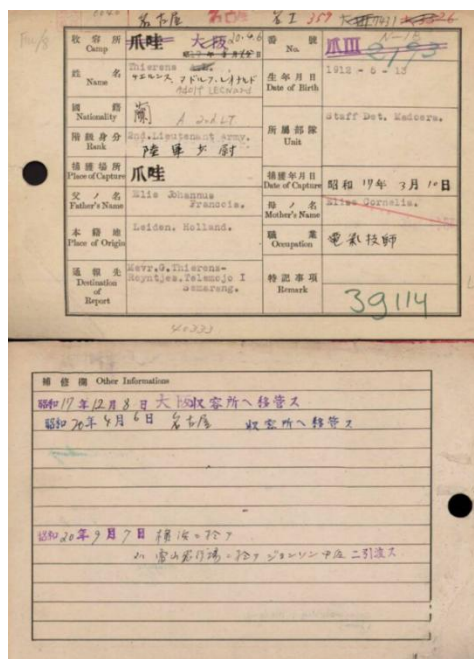 名古屋 359
收容所
Camp
爪哇 大阪 20.4.6
番號
No.
爪III
姓名
Name
Thierens
アドルフ.レオナルド
ADOLF LEONARD
生年月日
Date of Birth
1912 - 5 - 13
國籍
Nationality
蘭 A 2nd. LT
階級身分
Rank
2nd.Lieutenant Army.
陸軍少尉
所屬部隊
Unit
Staff Det. Madoera.
捕獲場所
Place of Capture
爪哇
捕獲年月日
Date of Capture
昭和 17年 3月 10日
父ノ名
Father's Name
Elia Johannus
Francois.
母ノ名
Mother's Name
Elisa Cornelia.
本籍地
Place of Origin
Leiden. Holland.
職業
Occupation
電氣技師
通報先
Destination of Report
Mevr.G.Thierens-
Reyntjes.Telemojo I
Semarang.
特記事項
Remark
39114
40333
補修欄 Other Informations
昭和17年12月8日 大阪収容所ヘ移管ス
昭和20年4月6日 名古屋 収容所ヘ移管ス
昭和20年9月7日 横浜ニ於テ
ニ引渡ス